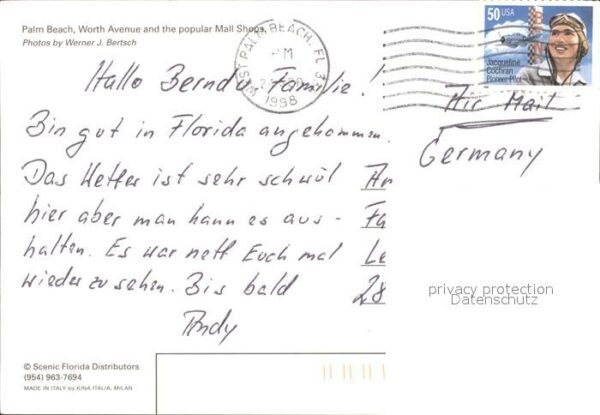 Palm Beach, Worth Avenue and the popular Mall Shops.
Photos by Werner J. Bertsch
WEST PALM BEACH, FL 3
PM
1998
50 USA
Jacqueline
Cochran
Pioneer Pilot
Hallo Bernd u. Familie!
Bin gut in Florida angekommen.
Das Wetter ist sehr schwül
hier aber man kann es aus-
halten. Es war nett Euch mal
wieder zu sehen. Bis bald
Andy
Air Mail
Germany
An
Fa
Le
28
privacy protection
Datenschutz
© Scenic Florida Distributors
(954) 963-7694
MADE IN ITALY by KINA ITALIA, MILAN